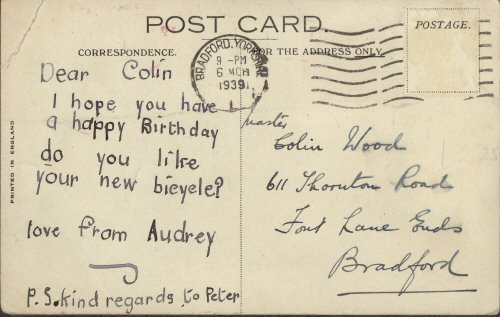 POST CARD.
CORRESPONDENCE.
FOR THE ADDRESS ONLY.
POSTAGE.
BRADFORD, YORKSHIRE
9 - PM
6 MCH
1939
Dear Colin
I hope you have
a happy Birthday
do you like
your new bicycle?
love from Audrey
P.S. kind regards to Peter
PRINTED IN ENGLAND
Master
Colin Wood
611 Thornton Road
Four Lane Ends
Bradford